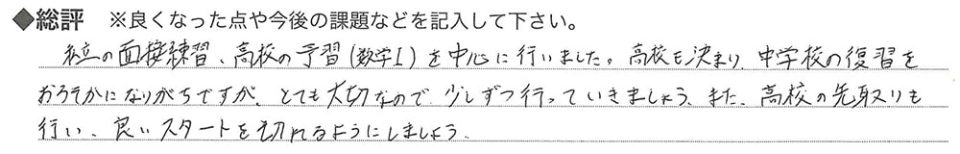 ◆総評 ※良くなった点や今後の課題などを記入して下さい。
私立の面接練習、高校の予習(数学I)を中心に行いました。高校も決まり、中学校の復習を
おろそかになりがちですが、とても大切なので、少しずつ行っていきましょう。また、高校の先取りも
行い、良いスタートを切れるようにしましょう。